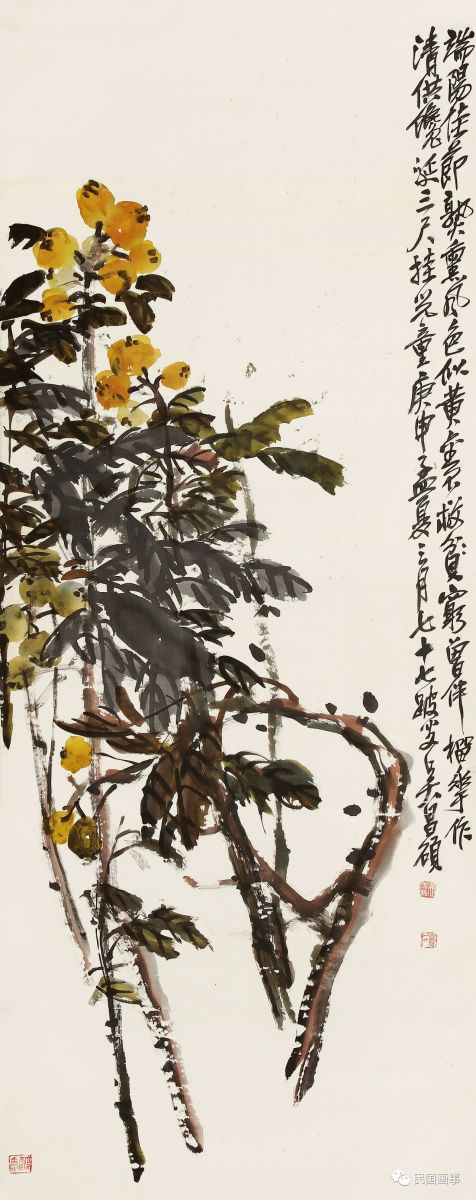 端陽佳節熟熏風色似黄金不救貧窮曾伴榴華作
清供饞涎三尺挂兒童庚申孟夏三月七十七跛叟吳昌碩
民国画事